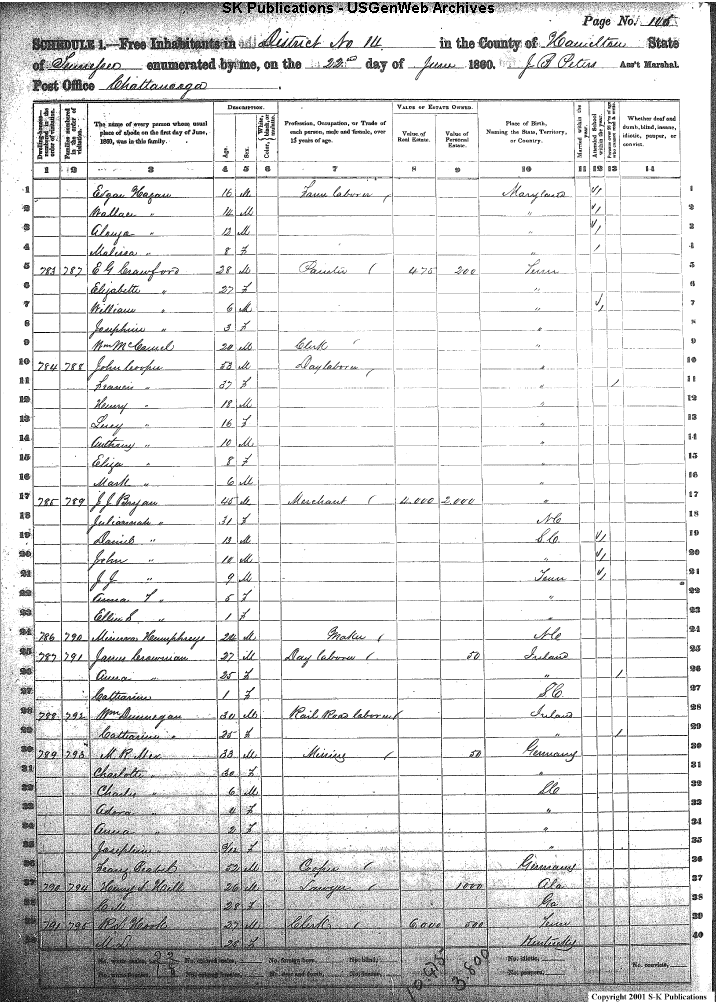 SK Publications - USGenWeb Archives
Page No. 105
SCHEDULE 1.—Free Inhabitants in District No 14 in the County of Hamilton State
of Tennessee enumerated by me, on the 22nd day of June 1860. J B Peters Ass't Marshal.
Post Office Chattanooga
DESCRIPTION. VALUE OF ESTATE OWNED.
Dwelling-houses—numbered in the order of visitation. Families numbered in the order of visitation. The name of every person whose usual place of abode on the first day of June, 1860, was in this family. Age. Sex. Color, White, black, or mulatto. Profession, Occupation, or Trade of each person, male and female, over 15 years of age. Value of Real Estate. Value of Personal Estate. Place of Birth, Naming the State, Territory, or Country. Married within the year. Attended School within the year. Whether deaf and dumb, blind, insane, idiotic, pauper, or convict.
1 2 3 4 5 6 7 8 9 10 11 12 13 14
1 Edgar Hagan 16 M Farm laborer Maryland / 1
2 Wallace " 14 M " / 2
3 " 12 M " / 3
4 Malissa " 8 F " / 4
5 783 787 E G Crawford 28 M Painter 475 200 Tenn 5
6 Elizabeth " 27 F " 6
7 William " 6 M " / 7
8 Josephine " 3 F " 8
9 Wm 20 M Clerk " 9
10 784 788 John Cooper 53 M Day laborer " 10
11 Francis " 37 F " / 11
12 Henry " 18 M " 12
13 Lucy " 16 F " 13
14 Anthony " 10 M " 14
15 Eliza " 8 F " 15
16 Mark " 6 M " 16
17 785 789 J J Bryan 45 M Merchant 4.000 2.000 " 17
18 Juliannah " 31 F NC 18
19 Daniel " 13 M SC / 19
20 John " 10 M " / 20
21 J J " 9 M Tenn / 21
22 Anna " 5 F " 22
23 Ellen S " 1 F " 23
24 786 790 Humphreys 24 M NC 24
25 787 791 James 27 M Day laborer 50 Ireland 25
26 Anna " 25 F " / 26
27 Catharine 1 F SC 27
28 788 792 Wm Dunnegan 30 M Rail Road laborer Ireland 28
29 Catharine " 25 F " / 29
30 789 793 M R 33 M 50 Germany 30
31 Charlotte " 30 F " 31
32 Charles " 6 M SC 32
33 Adora " 4 F " 33
34 Anna " 2 F " 34
35 Josephine " 3/12 F " 35
36 52 M Cooper Germany 36
37 790 794 Henry 26 M Lawyer 1000 Ala 37
38 28 F Ga 38
39 791 795 Hook 27 M Clerk 6.000 500 Tenn 39
40 20 F Kentucky 40
10.475 3.800
Copyright 2001 S-K Publications